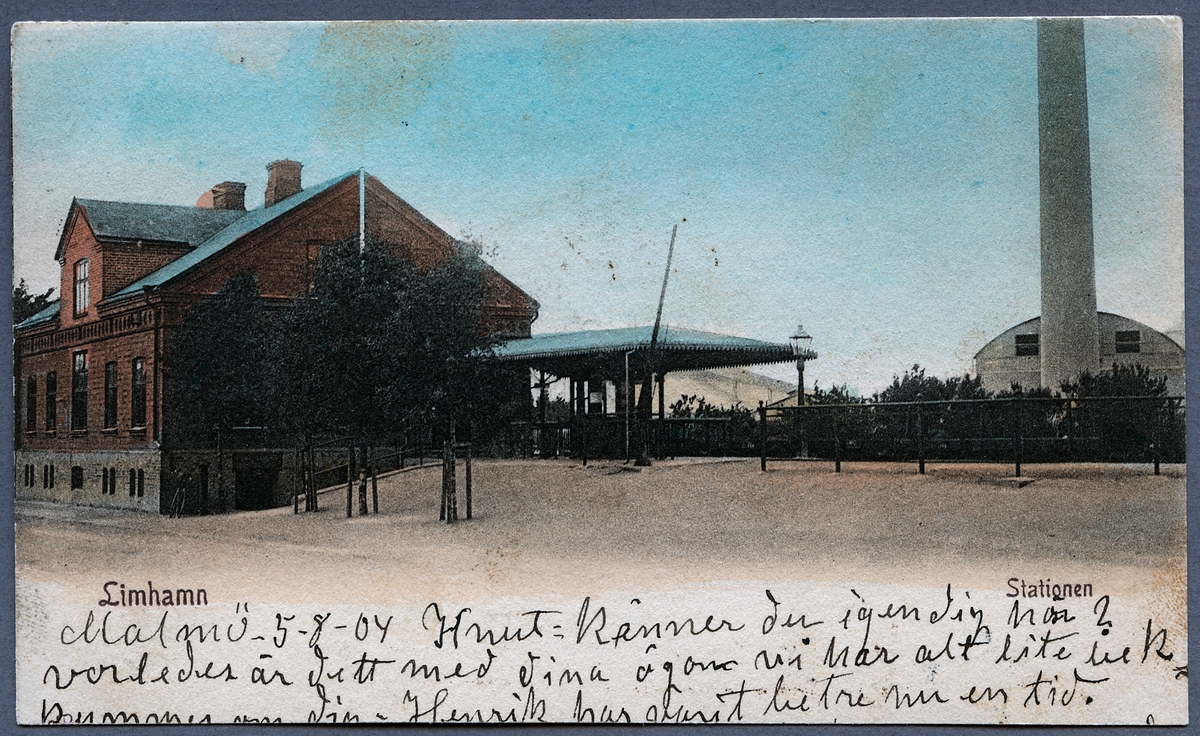 Limhamn
Stationen
Malmö-5-8-04 Knut= Känner du igen dig här?
vorledes är dett med dina ögon vi har alt lite bek
kummer om dig- Henrik har varit betre nu en tid.